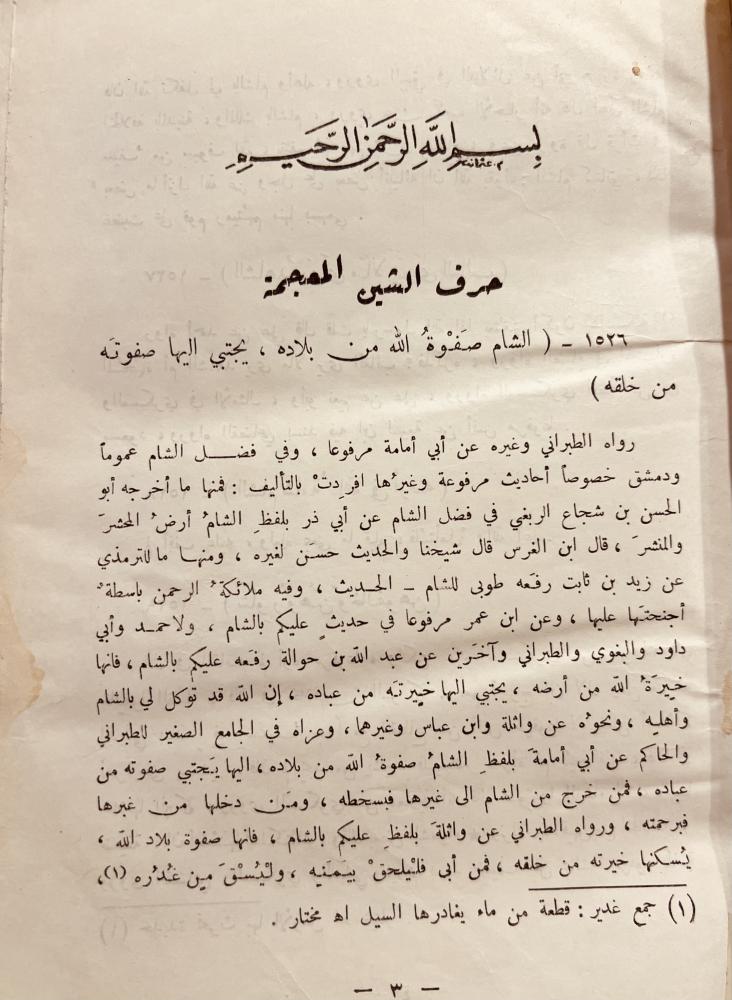 بسم الله الرحمن الرحيم
حرف الشين المعجمة
١٥٢٦ - ( الشام صَفْوَةُ الله من بلاده ، يجتبي اليها صفوتَه
من خلقه )
رواه الطبراني وغيره عن أبي أمامة مرفوعا ، وفي فضل الشام عموماً
ودمشق خصوصاً أحاديث مرفوعة وغيرُها افرِدتْ بالتأليف : فمنها ما أخرجه أبو
الحسن بن شجاع الربغي في فضل الشام عن أبي ذر بلفظِ الشامُ أرضُ المحشرَ
والمنشرَ ، قال ابن الغرس قال شيخنا والحديث حسَن لغيره ، ومنها ما للترمذي
عن زيد بن ثابت رفَعه طوبى للشام - الحديث ، وفيه ملائكةُ الرحمن باسطةٌ
أجنحتَها عليها ، وعن ابن عمر مرفوعا في حديثٍ عليكم بالشام ، ولاحمد وأبي
داود والبغوي والطبراني وآخَرين عن عبد الله بن حوالة رفَعه عليكم بالشام ، فانها
خِيرَةُ الله من أرضه ، يجتبي اليها خِيرتَه من عباده ، إن الله قد توكل لي بالشام
وأهلِه ، ونحوُه عن واثلة وابن عباس وغيرهما ، وعزاه في الجامع الصغير للطبراني
والحاكم عن أبي أمامةَ بلفظِ الشامُ صفوةُ الله من بلاده ، اليها يَجتبي صفوته من
عباده ، فمن خرج من الشام الى غيرها فبسخطه ، ومَن دخلها من غيرها
فبرحمته ، ورواه الطبراني عن واثلةَ بلفظِ عليكم بالشام ، فانها صفوة بلاد الله ،
يُسكنها خيرته من خلقه ، فمن أبى فلْيلحقْ بيَمَنِه ، ولْيُسْقَ مِن غُدُره (١)،
(١) جمع غدير : قطعة من ماء يغادرها السيل اه مختار .
- ٣ -